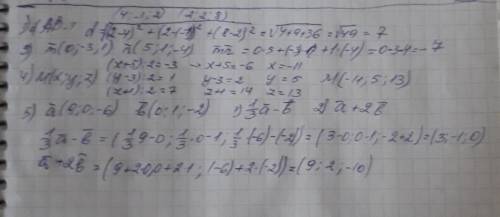 (4;-1;2) (2;2;8)
d AB-? d=√(2-4)²+(2-(-1))²+(8-2)²=√4+9+36=√49=7
(0;-3;1) (5;1;-4) =0·5+(-3)·1+1·(-4)=0-3-4=-7
(x+5):2=-3 → x+5=-6 x=-11
4) M(x;y;z) (y-3):2=1 y-3=2 y=5 M(-11;5;13)
(z+1):2=7 z+1=14 z=13
5) a̅(9;0;-6) b̅(0;1;-2) 1) 1/3 a̅-b̅ 2) a̅+2b̅
1/3 a̅-b̅=(1/3·9-0; 1/3·0-1; 1/3·(-6)-(-2))=(3-0;0-1;-2+2)=(3;-1;0)
a̅+2b̅=(9+2·0;0+2·1;(-6)+2·(-2))=(9;2;-10)